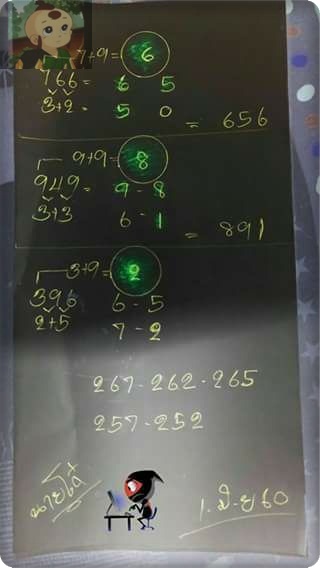 7+9= 6
766= 6 5
3+2= 5 0
= 656
9+9= 8
949= 9-8
3+3 6-1
= 891
3+9= 2
396 6-5
2+5 7-2
267-262-265
257-252
1.มิ.ย 60